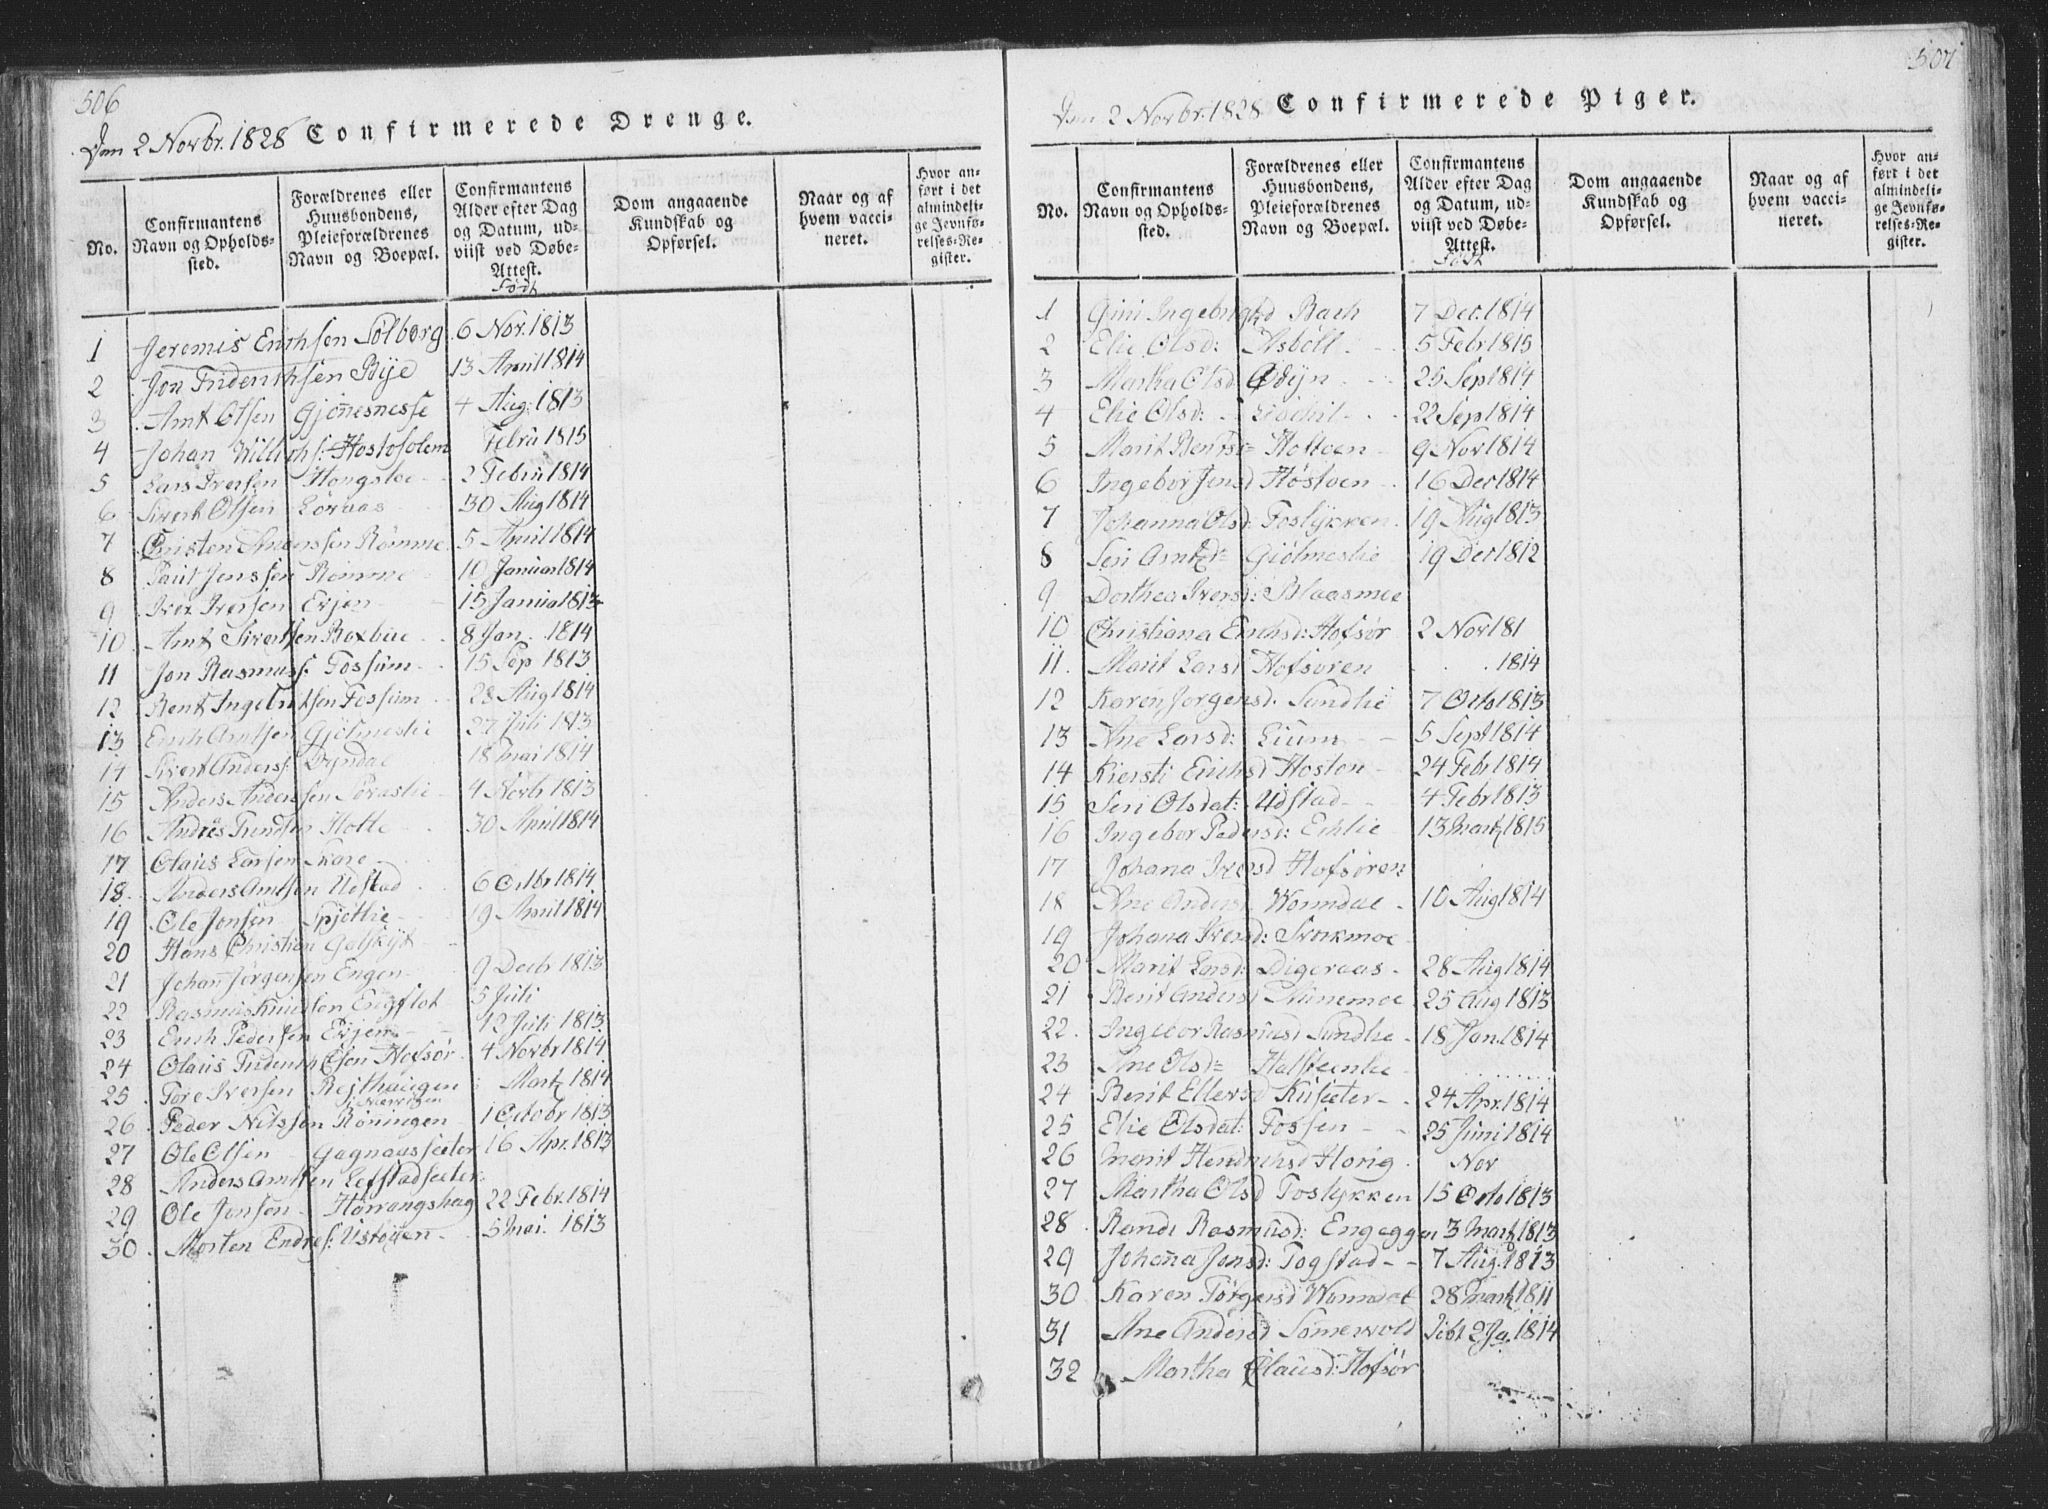 506
Den 2 Novbr. 1828 Confirmerede Drenge.
No.
Confirmantens Navn og Opholds-sted.
Forældrenes eller Huusbondens, Pleieforældrenes Navn og Boepæl.
Confirmantens Alder efter Dag og Datum, ud-viist ved Døbe-Attest.
Dom angaaende Kundskab og Opførsel.
Naar og af hvem vacci-neret.
Hvor an-ført i det almindeli-ge Jevnfø-relses-Re-gister.
Født
1 Jeremis Erichsen Solborg 6 Nov. 1813
2 Jon Friderichsen Bye 13 April 1814
3 Arnt Olsen Gjønesnesse 4 Aug: 1813
4 Johan Hostosolem Febru 1815
5 Lars Iversen Hongslie 2 Febru 1814
6 Sivert Olsen Lovaas 30 Aug 1814
7 Christen Anderssen Romme 5 April 1814
8 Paul Jenssen Romme 10 Januar 1814
9 Iver Iversen Evjen 15 Janua 1813
10 Arnt Sivertsen Roxbue 8 Jan. 1814
11 Jon Rasmuss: Fossum 15 Sep 1813
12 Bent Ingebritsen Fossum 28 Aug 1814
13 Erich Arntsen Gjølmeslie 27 Juli 1813
14 Sivert Anders: Dyndal 18 Mai 1814
15 Anders Andersen Soraslie 4 Novb 1813
16 Andres Trundsen Holte 30 April 1814
17 Olaus Larsen Skare
18 Anders Arntsen Udstad 6 Octbr 1814
19 Ole Jonsen Spjøtlie 19 April 1814
20 Hans Christian
21 Johan Jørgensen Engen 9 Decbr 1813
22 Rasmus Knudsen Engflot 5 Juli
23 Erich Pedersen Evjen 12 Juli 1813
24 Olaus Friderichsen Hofsør 4 Novbr 1814
25 Tore Iversen Resthaugen Martz 1814
26 Peder Nilssen Røningen 1 Octobr 1813
27 Ole Olsen Gagnaasseeter 16 Apr. 1813
28 Anders Arntsen Lefstadseeter
29 Ole Jonsen Harrangshag 22 Febr. 1814
30 Morten Endres: Ustøyen 5 Mai 1813
507
Den 2 Novbr. 1828 Confirmerede Piger.
No.
Confirmantens Navn og Opholds-sted.
Forældrenes eller Huusbondens, Pleieforældrenes Navn og Boepæl.
Confirmantens Alder efter Dag og Datum, ud-viist ved Døbe-Attest.
Dom angaaende Kundskab og Opførsel.
Naar og af hvem vacci-neret.
Hvor an-ført i det almindeli-ge Jevnfø-relses-Re-gister.
Født
1 Guni Ingebrigtd Bach 7 Dec. 1814
2 Elie Olsd: Asbøll 5 Febr 1815
3 Martha Olsd Ødyn 25 Sep 1814
4 Elie Olsd: 22 Sep 1814
5 Marit Bentsd Holtven 9 Nov 1814
6 Ingebor Jensd Høstven 16 Dec 1814
7 Johanna Olsd: Foslykken 19 Aug 1813
8 Seri Arntzd Giølmeslie 19 Dec 1812
9 Dorthea Iversd: Blaasmoe
10 Christiana Erichsd: Hofsør 2 Nov 181
11. Marit Larsd Hofsøren 1814
12 Karen Jorgensd. Sundlie 7 Octo 1813
13 Ane Larsd: Lium 5 Sept 1814
14 Kiersti Erichsd Hoston 24 Febr 1814
15 Seri Olsdat: Udstad 4 Febr 1813
16 Ingebor Pedersd: Echlie 13 Martz 1815
17 Johana Iversd Hofsøren
18 Ane Andersd Wormdal 10 Aug 1814
19 Johana Iversd: Storkmoe
20 Marit Larsd: Digeraas 28 Aug 1814
21 Berit Andersd Munemoe 25 Aug 1813
22. Ingebor Rasmusd Sundlie 18 Jan. 1814
23 Ane Olsd Halsteinlie
24 Berit Ellevsd Kuseeter 24 Apr. 1814
25 Elie Olsdat: Fossen 25 Juni 1814
26 Marit Hendrichsd Horig Nov
27 Martha Olsd Foslykken 15 Octo 1813
28 Randi Rasmusd: Engeggen 3 Martz 1813
29 Johana Jonsd: Togstad 7 Aug. 1813
30 Karen Törgersd Wormdal 28 Martz 1811
31 Ane Andersd Somervold Febr 2 Ja. 1814
32 Martha Olausd: Hofsør